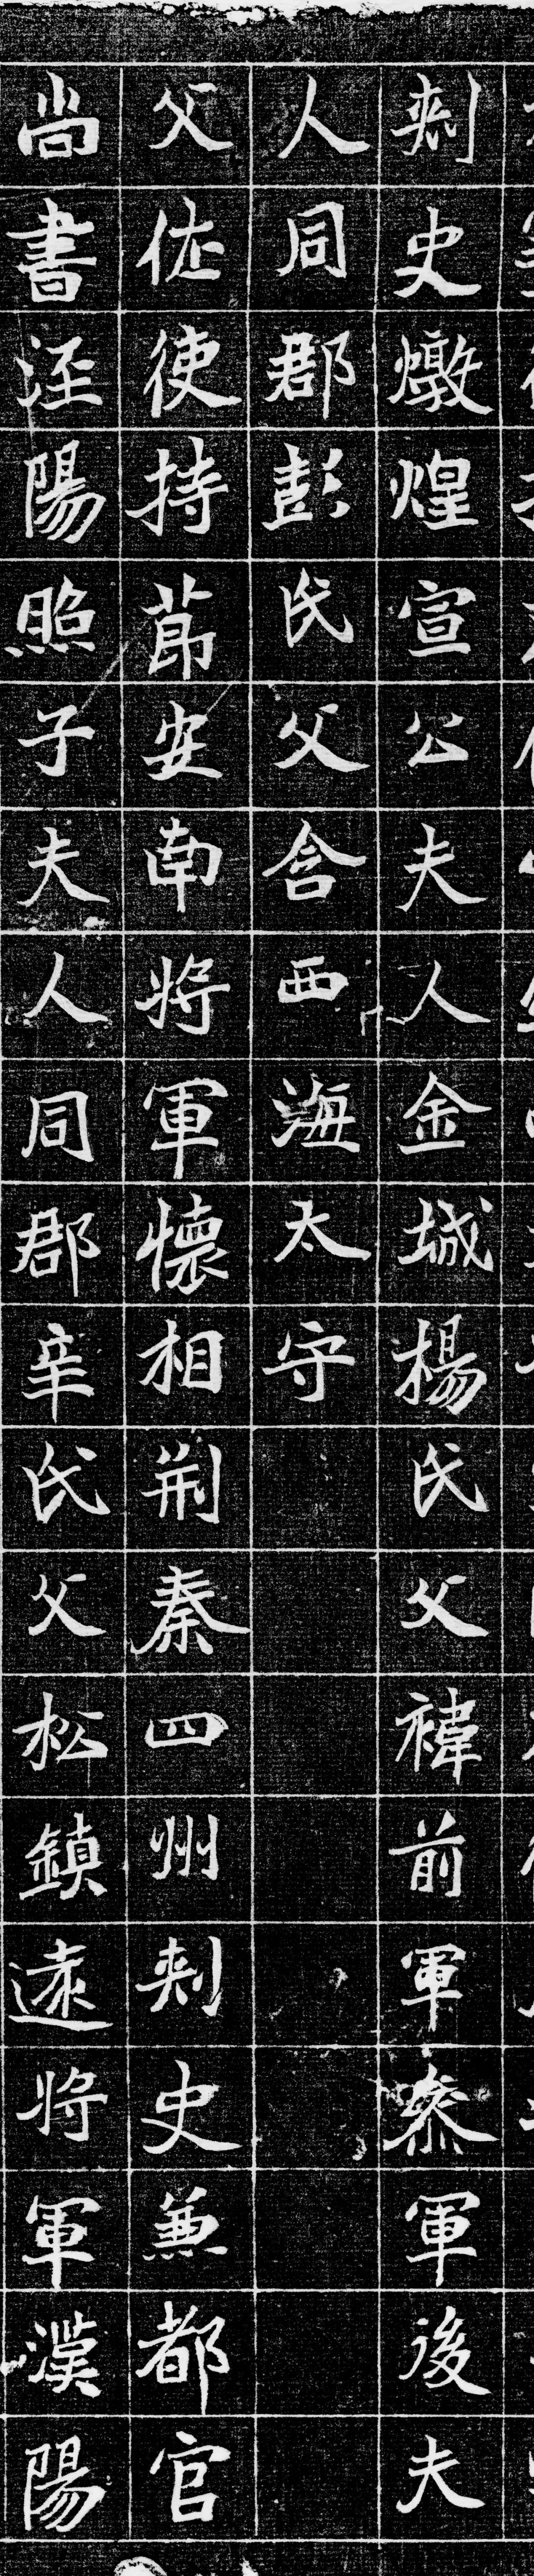 刺史燉煌宣公夫人金城楊氏父禕前軍叅軍後夫
人同郡彭氏父含西海太守
父佐使持節安南將軍懷相荆秦四州刺史兼都官
尚書涇陽照子夫人同郡辛氏父松鎮遠將軍漢陽